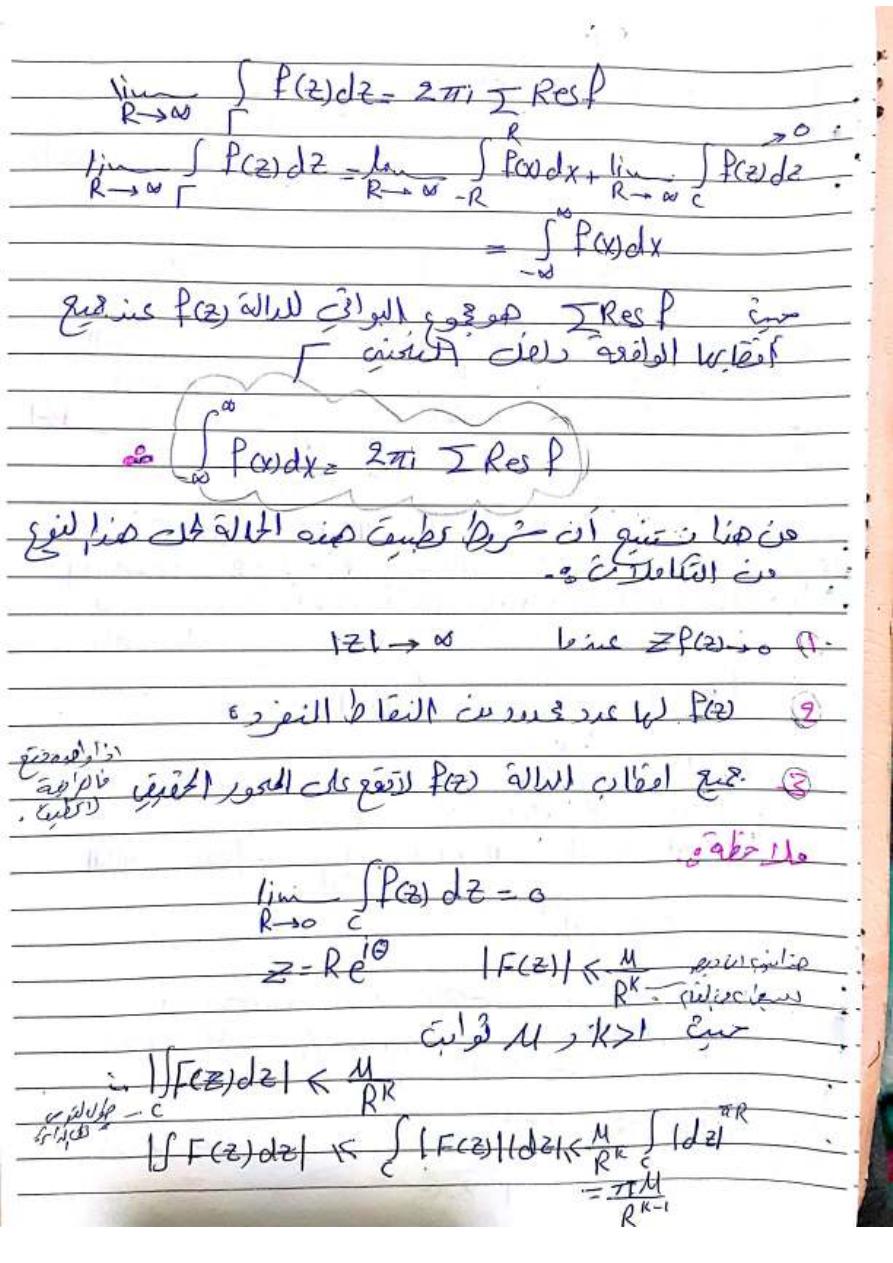 lim_{R→∞} ∫_Γ f(z)dz = 2πi Σ Res f
lim_{R→∞} ∫_Γ f(z)dz = lim_{R→∞} ∫_{-R}^{R} f(x)dx + lim_{R→∞} ∫_C f(z)dz → 0
= ∫_{-∞}^{∞} f(x)dx
حيث Σ Res f هو مجموع البواقي للدالة f(z) عند جميع
أقطابها الواقعة داخل المنحني Γ
∴ ∫_{-∞}^{∞} f(x)dx = 2πi Σ Res f
من هنا نستنتج أن شروط تطبيق هذه الحالة لحل هذا النوع
من التكاملات :-
① zf(z)→0 عندما |z| → ∞
② f(z) لها عدد محدود من النقاط المنفردة
③ جميع اقطاب الدالة f(z) لا تقع على المحور الحقيقي
ملاحظة :
lim_{R→0} ∫_C f(z) dz = 0
z = Re^{iθ} |F(z)| ≤ M/R^k
حيث k>1 و M ثوابت
∴ |∫_C F(z)dz| ≤ M/R^k
|∫ F(z)dz| ≤ ∫_C |F(z)||dz| ≤ M/R^k ∫_C |dz| πR
= πM/R^{k-1}